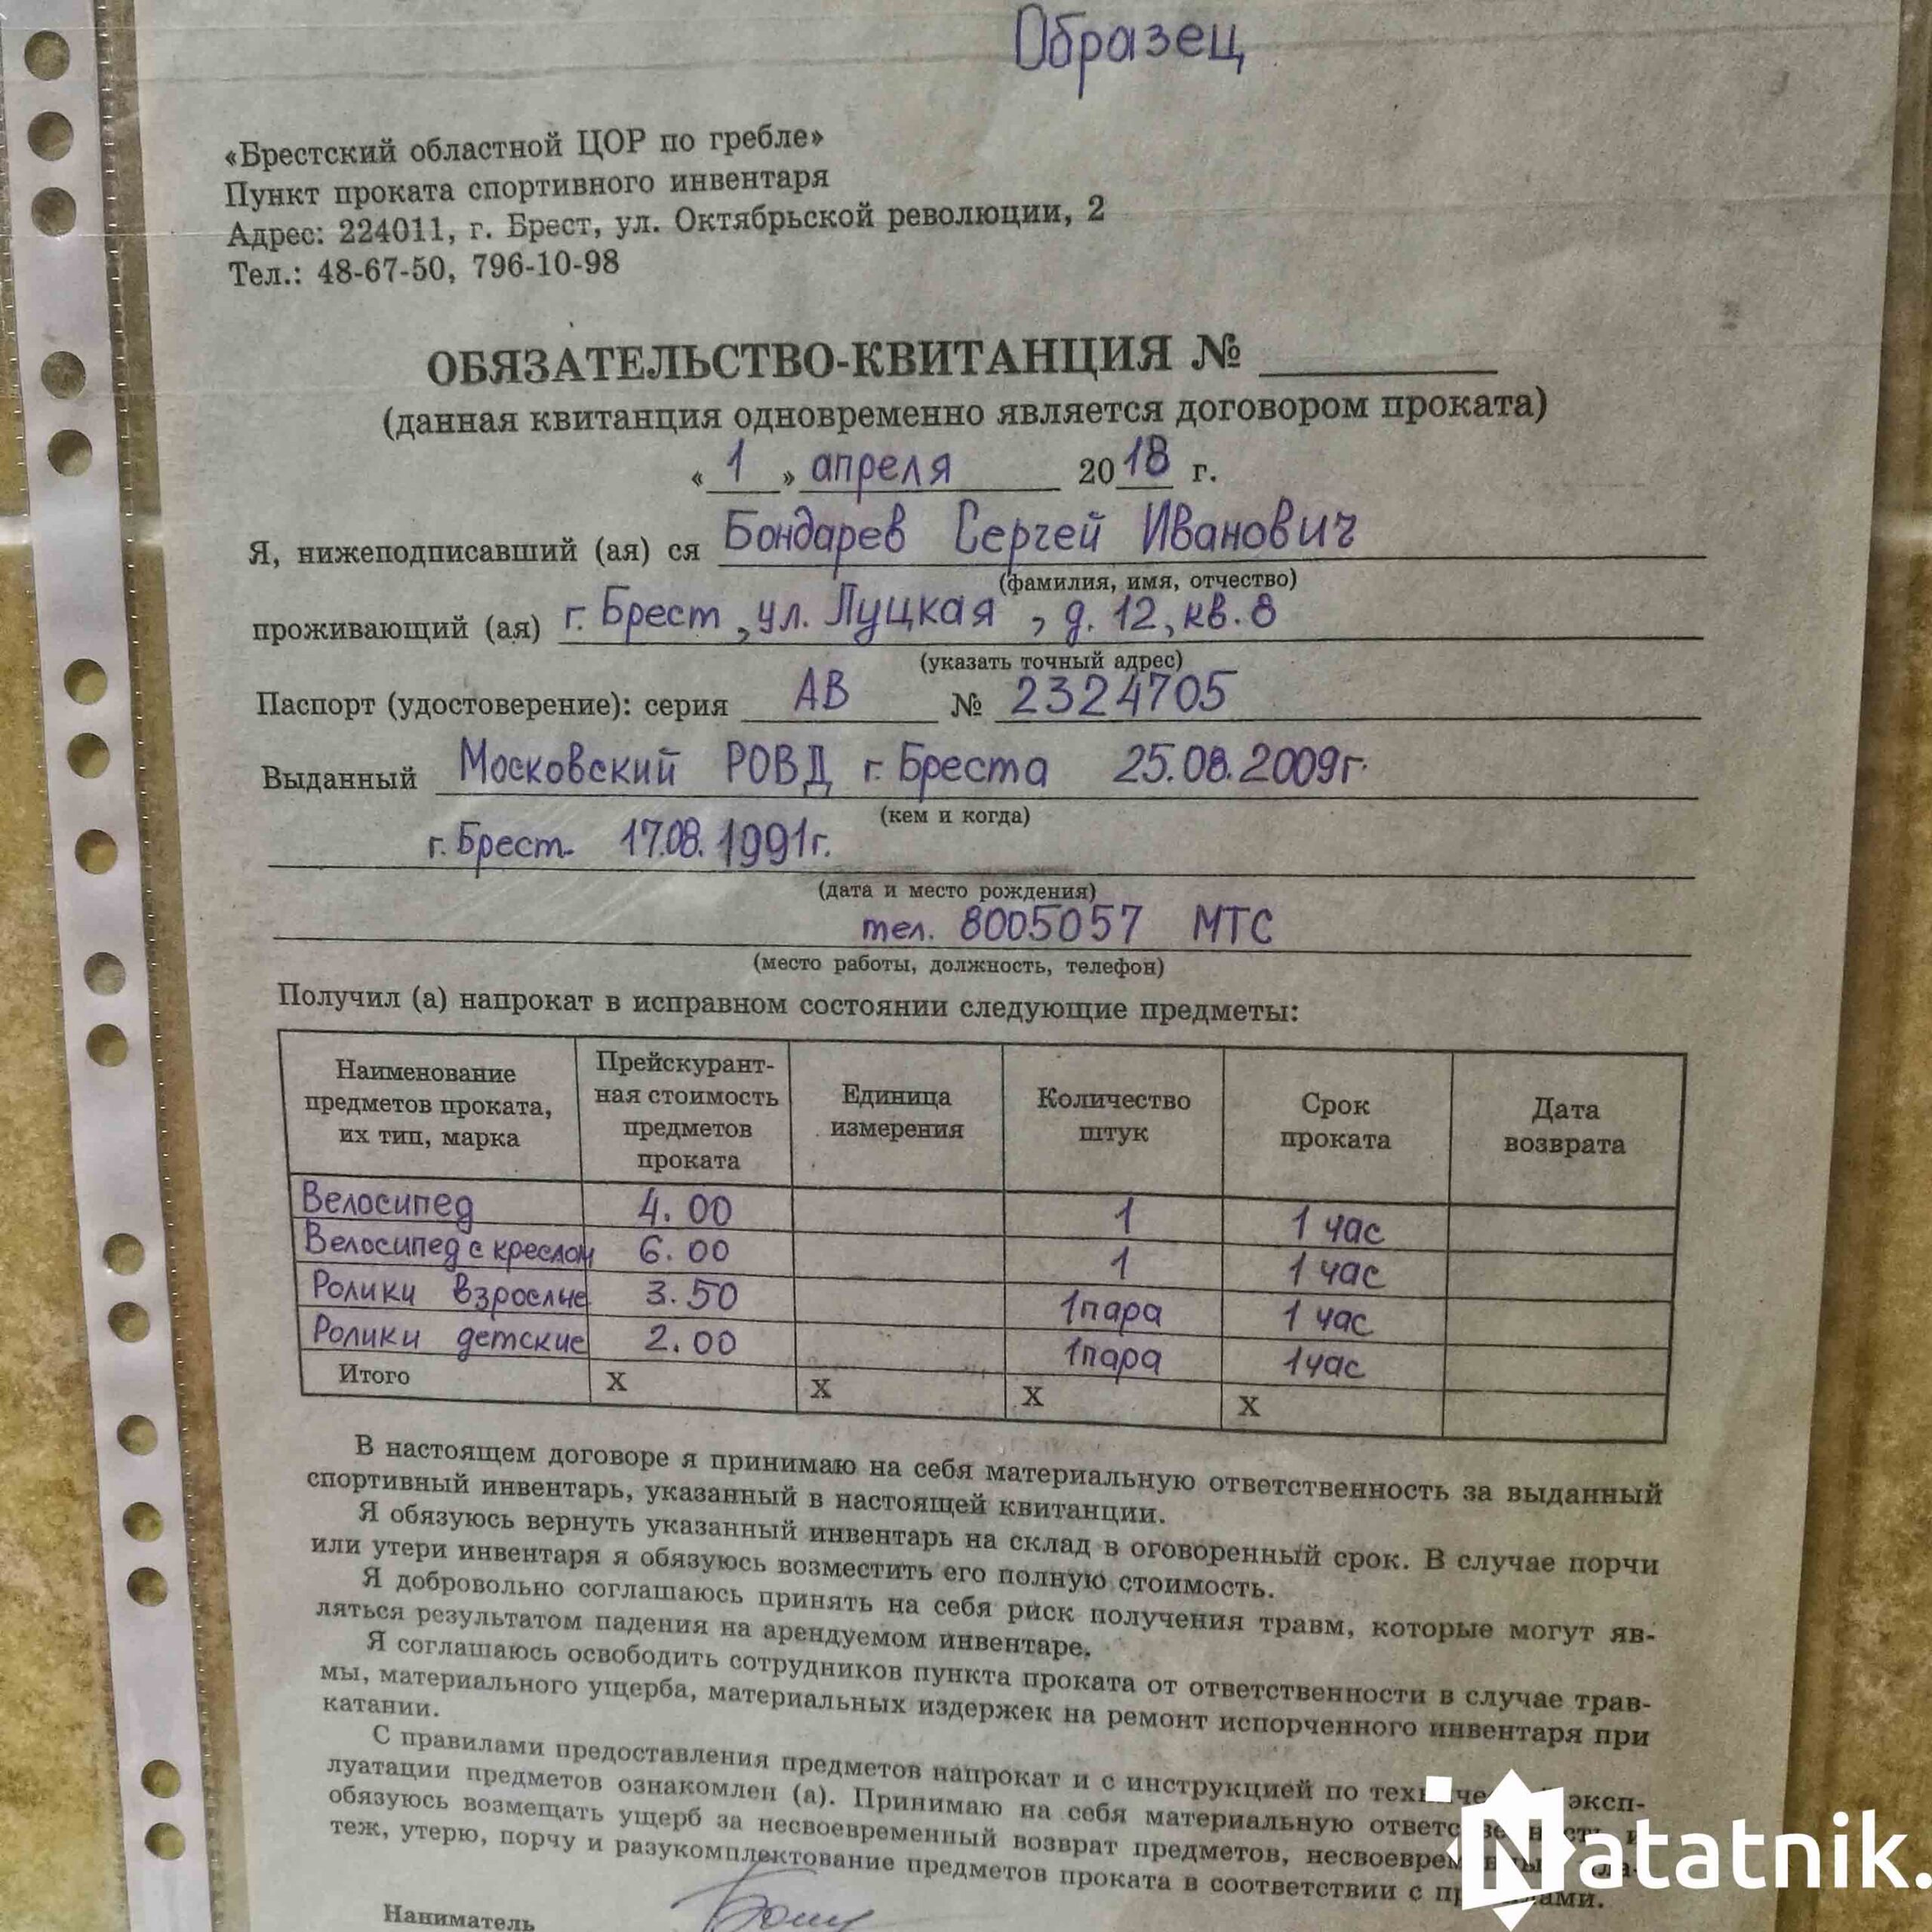 Образец
«Брестский областной ЦОР по гребле»
Пункт проката спортивного инвентаря
Адрес: 224011, г. Брест, ул. Октябрьской революции, 2
Тел.: 48-67-50, 796-10-98
ОБЯЗАТЕЛЬСТВО-КВИТАНЦИЯ №
(данная квитанция одновременно является договором проката)
« 1 » апреля 2018 г.
Я, нижеподписавший (ая) ся Бондарев Сергей Иванович
(фамилия, имя, отчество)
проживающий (ая) г. Брест, ул. Луцкая, д. 12, кв. 8
(указать точный адрес)
Паспорт (удостоверение): серия АВ № 2324705
Выданный Московский РОВД г. Бреста 25.08.2009г.
(кем и когда)
г. Брест 17.08.1991г.
(дата и место рождения)
тел. 8005057 МТС
(место работы, должность, телефон)
Получил (а) напрокат в исправном состоянии следующие предметы:
Наименование предметов проката, их тип, марка Прейскурант-ная стоимость предметов проката Единица измерения Количество штук Срок проката Дата возврата
Велосипед 4.00 1 1 час
Велосипед с креслом 6.00 1 1 час
Ролики взрослые 3.50 1пара 1 час
Ролики детские 2.00 1пара 1час
Итого X X X X
В настоящем договоре я принимаю на себя материальную ответственность за выданный
спортивный инвентарь, указанный в настоящей квитанции.
Я обязуюсь вернуть указанный инвентарь на склад в оговоренный срок. В случае порчи
или утери инвентаря я обязуюсь возместить его полную стоимость.
Я добровольно соглашаюсь принять на себя риск получения травм, которые могут яв-
ляться результатом падения на арендуемом инвентаре.
Я соглашаюсь освободить сотрудников пункта проката от ответственности в случае трав-
мы, материального ущерба, материальных издержек на ремонт испорченного инвентаря при
катании.
С правилами предоставления предметов напрокат и с инструкцией по технической эксп-
луатации предметов ознакомлен (а). Принимаю на себя материальную ответственность и
обязуюсь возмещать ущерб за несвоевременный возврат предметов, несвоевременный пла-
теж, утерю, порчу и разукомплектование предметов проката в соответствии с правилами.
Наниматель
Natatnik.